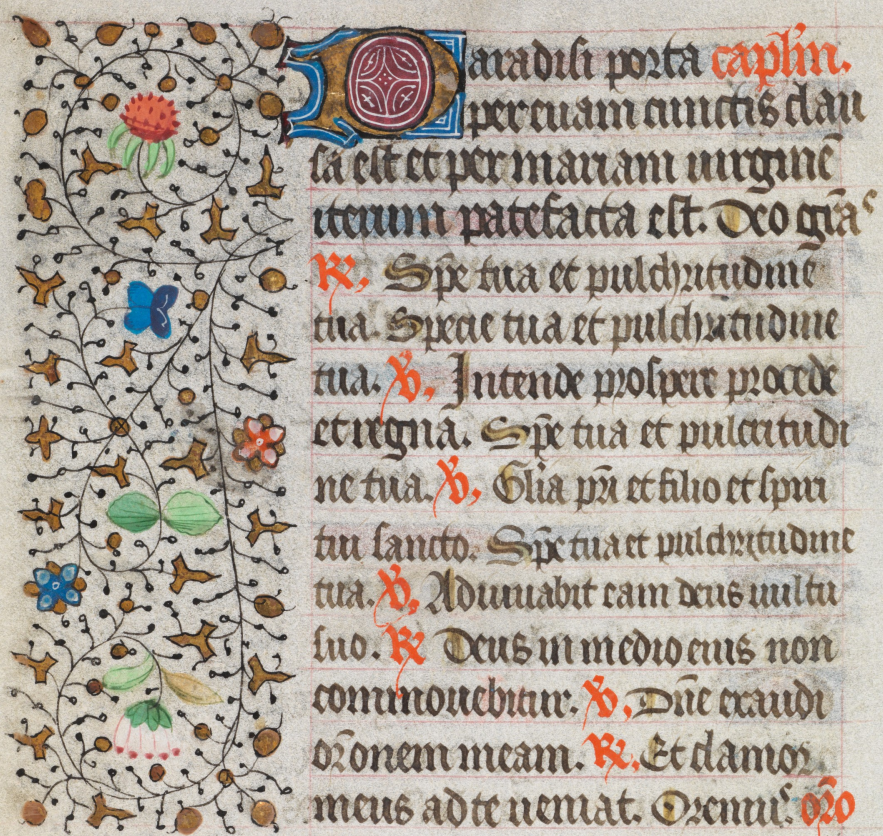 Paradisi porta caplm.
per euam cunctis clau
sa est et per mariam uirginē
iterum patefacta est. Deo grāˢ
℟. Spē tua et pulchritudinē
tua. Specie tua et pulchritudine
tua. ℣. Intende prospere procede
et regna. Spē tua et pulcritudi
ne tua. ℣. Glīa pr̄i et filio et spiri
tui sancto. Spē tua et pulchritudine
tua. ℣. Adiuuabit eam deus uultu
suo. ℟ Deus in medio eius non
commouebitur. ℣. Dn̄e exaudi
or̄onem meam. ℟. Et clamor
meus ad te ueniat. Oremuˢ. or̄o